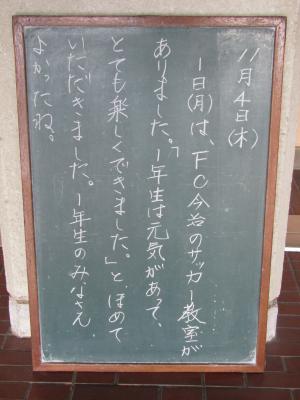 11月4日(木)
1日(月)は、FC今治のサッカー教室が
ありました。「1年生は元気があって、
とても楽しくできました。」と、ほめて
いただきました。1年生のみなさん
よかったね。